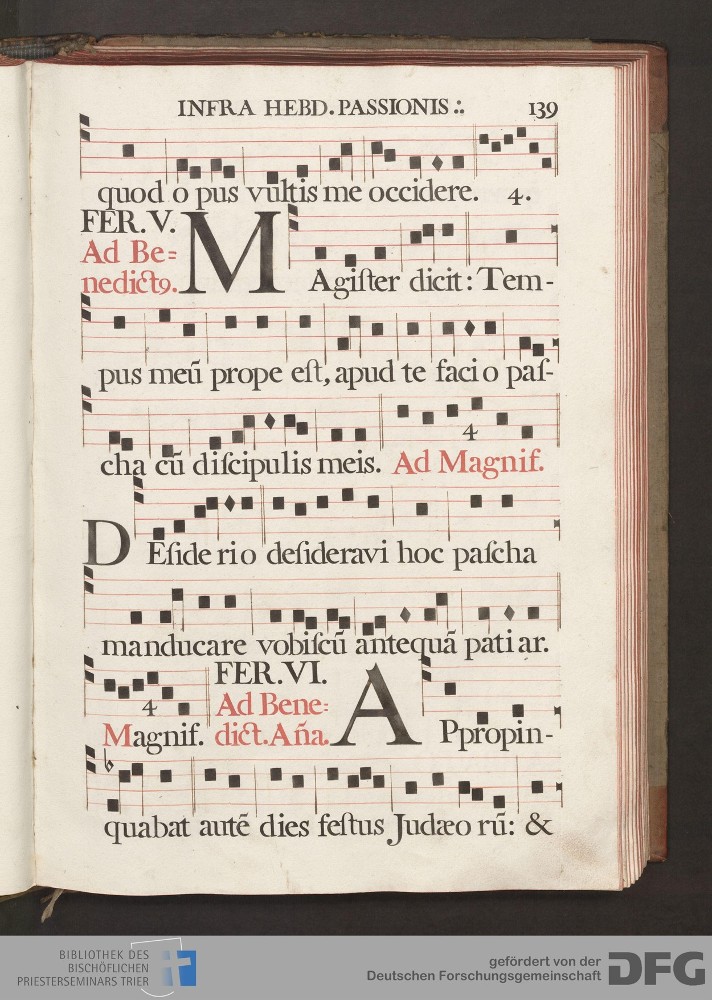 INFRA HEBD. PASSIONIS :. 139
quod o pus vultis me occidere. 4.
FER. V.
Ad Be=
nedict9. MAgiſter dicit: Tem-
pus meũ prope eſt, apud te faci o paſ-
cha cũ diſcipulis meis. Ad Magnif. 4
DEſide ri o deſideravi hoc paſcha
manducare vobiſcũ antequã pati ar.
4
Magnif. FER. VI.
Ad Bene=
dict. Aña. APpropin-
quabat autẽ dies feſtus Judæo rũ: &
BIBLIOTHEK DES
BISCHÖFLICHEN
PRIESTERSEMINARS TRIER
gefördert von der
Deutschen Forschungsgemeinschaft DFG